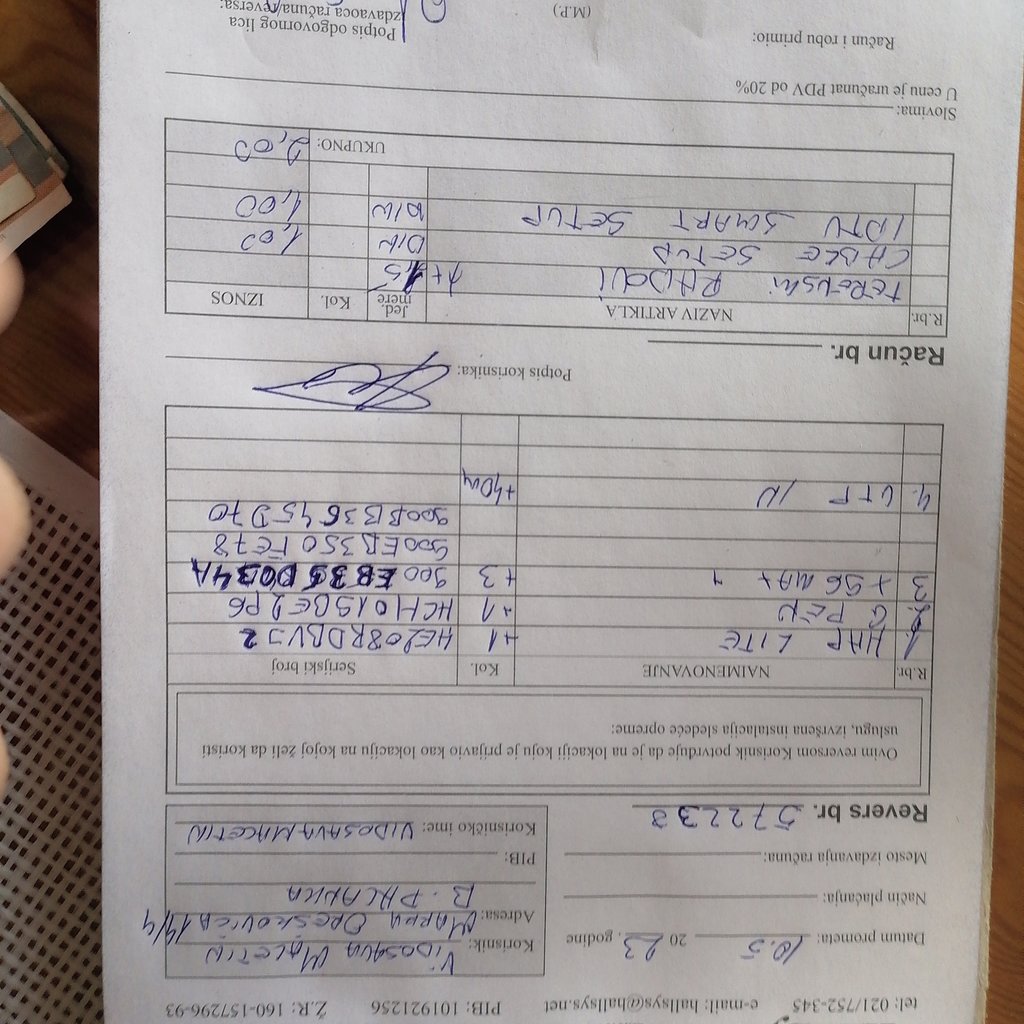 tel: 021/752-345 e-mail: hallsys@hallsys.net PIB: 101921256 Ž.R: 160-157296-93
Datum prometa: 10.5 20 23. godine
Način plaćanja:
Mesto izdavanja računa:
Korisnik: VIDOSAVA MALETIN
Adresa: MARKA OREŠKOVIĆA 14/4
B. PALANKA
PIB:
Korisničko ime: VIDOSAVAMALETIN
Revers br. 572238
Ovim reversom Korisnik potvrđuje da je na lokaciji koju je prijavio kao lokaciju na kojoj želi da koristi
uslugu, izvršena instalacija sledeće opreme:
R.br. NAIMENOVANJE Kol. Serijski broj
1. HAP LITE +1 HE208RDBVJ2
2. GPEN +1 HCH015BE2PG
3 +3
900EB350FE78
4. UTP IN +40m
Potpis korisnika:
Račun br.
R.br. NAZIV ARTIKLA Jed. mere Kol. IZNOS
TERENSKI RADOVI 1+1,5
CABLE SETUP DIN 1,00
IDTV SMART SETUP DIN 1,00
UKUPNO: 2,00
Slovima:
U cenu je uračunat PDV od 20%
Račun i robu primio:
(M.P.)
Potpis odgovornog lica
izdavaoca računa/reversa: